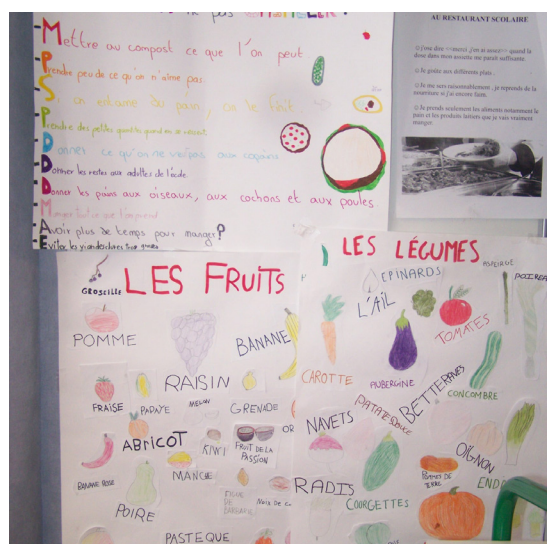 pas
Mettre au compost ce que l'on peut
Prendre peu de ce qu'on n'aime pas.
on entame du pain, on le finit
Prendre des petites quantités quand on se ressert.
Donner ce qu'on ne veut pas aux copains
Donner les restes aux adultes de l'école
Donner les pains aux oiseaux, aux cochons et aux poules.
Manger tout ce que l'on prend
Avoir plus de temps pour manger?
Eviter
AU RESTAURANT SCOLAIRE
j'ose dire <<merci j'en ai assez>> quand la
dose dans mon assiette me paraît suffisante.
Je goûte aux différents plats.
Je me sers raisonnablement, je reprends de la
nourriture si j'ai encore faim.
Je prends seulement les aliments notamment le
pain et les produits laitiers que je vais vraiment
manger.
LES FRUITS
GROSEILLE
POMME
BANANE
RAISIN
FRAISE
PAPAYE
MELON
GRENADE
ABRICOT
KIWI
FRUIT DE LA
PASSION
OR
BANANE ROSE
MANGUE
POIRE
FIGUE
DE
BARBARIE
NOIX DE
PASTEQUE
LES LÉGUMES
EPINARDS
POIREAU
L'AIL
TOMATES
CAROTTE
AUBERGINE
BETTERAVES
CONCOMBRE
NAVETS
PATATE DOUCE
OIGNON
RADIS
COURGETTES
POMMES DE
TERRE
END